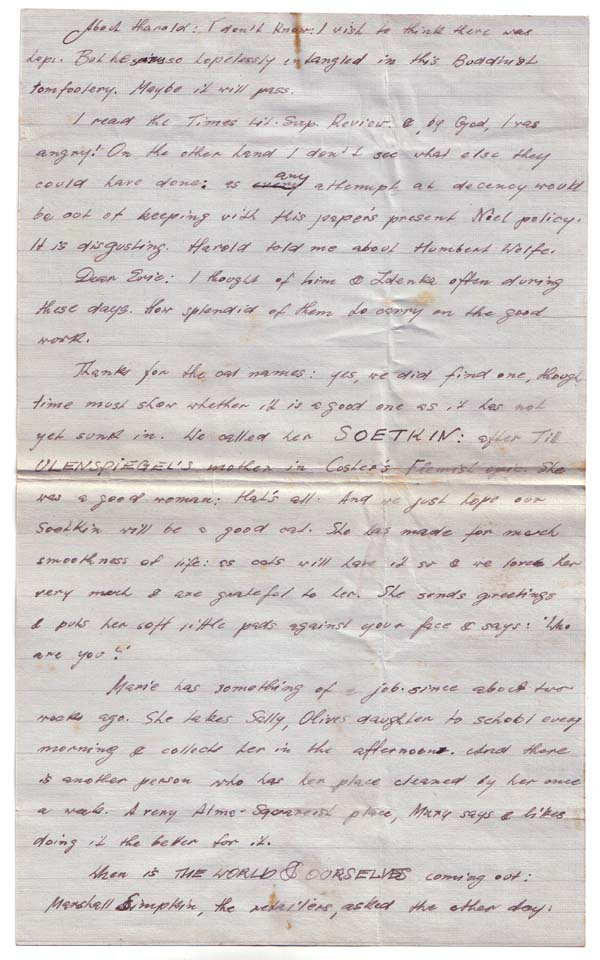 About Harold: I don't know: I wish to think there was
hope. But he so hopelessly entangled in this Buddhist
tomfoolery. Maybe it will pass.
I read the Times Lit. Sup. Review. & by God, I was
angry! On the other hand I don't see what else they
could have done: as any attempt at decency would
be out of keeping with this paper's present Noel policy.
It is disgusting. Harold told me about Humbert Wolfe.
Dear Eric: I thought of him & Zdenka often during
these days. How splendid of them to carry on the good
work.
Thanks for the cat names: yes, we did find one, though
time must show whether it is a good one as it has not
yet sunk in. We called her SOETKIN: after Till
ULENSPIEGEL'S mother in Coster's Flemish epic. She
was a good woman: that's all. And we just hope our
Soetkin will be a good cat. She has made for much
smoothness of life: as cats will have it so & we love her
very much & are grateful to her. She sends greetings
& puts her soft little pads against your face & says: 'Who
are you?'
Marie has something of a job since about two
weeks ago. She takes Sally, Olives daughter to school every
morning & collects her in the afternoon. And there
is another person who has her place cleaned by her once
a week. A very Alma-Squareist place, Mary says & likes
doing it the better for it.
When is THE WORLD & OURSELVES coming out:
Marshall Simpkin, the retailers, asked the other day.